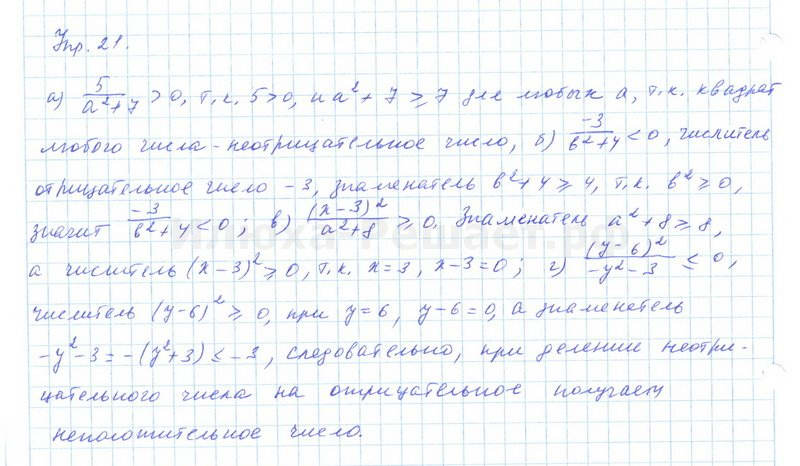 Упр. 21.
а) 5/(a²+7) > 0, т.к. 5>0, и a²+7 ≥ 7 для любых a, т.к. квадрат
любого числа - неотрицательное число, б) -3/(b²+4) < 0, числитель
отрицательное число -3, знаменатель b²+4 ≥ 4, т.к. b² ≥ 0,
значит -3/(b²+4) < 0; в) (x-3)²/(a²+8) ≥ 0. Знаменатель a²+8 ≥ 8,
а числитель (x-3)² ≥ 0, т.к. x=3, x-3=0; г) (y-6)²/(-y²-3) ≤ 0,
числитель (y-6)² ≥ 0, при y=6, y-6=0, а знаменатель
-y²-3 = -(y²+3) ≤ -3, следовательно, при делении неотри-
цательного числа на отрицательное получаем
неположительное число.